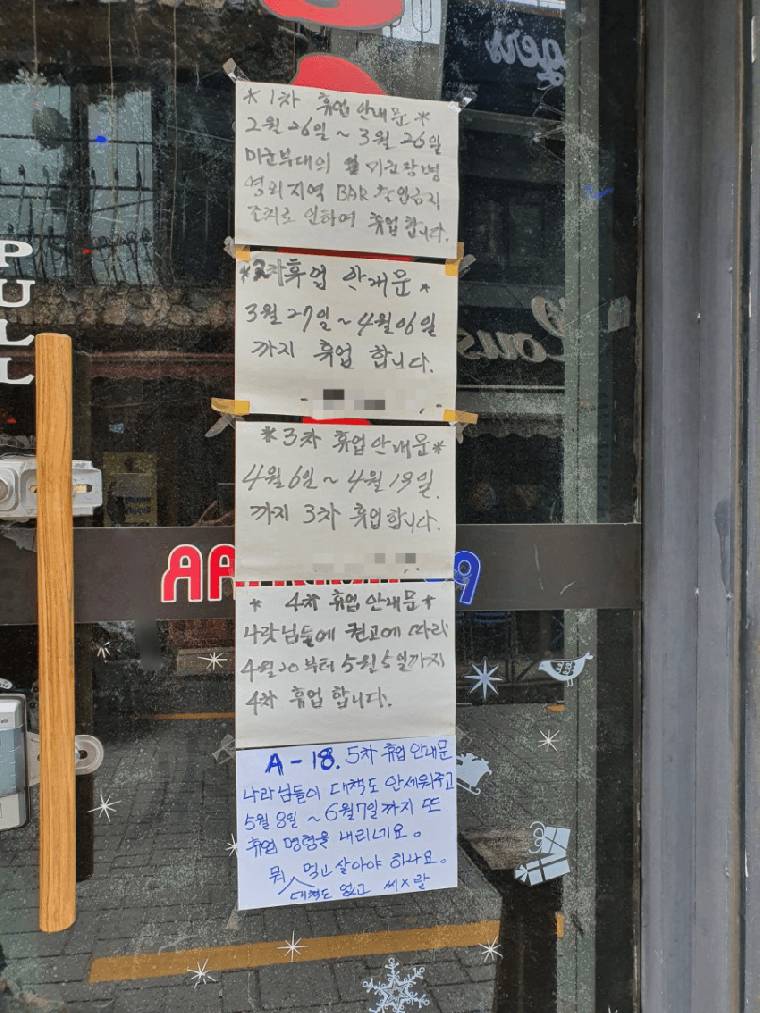 PULL
* 1차 휴업 안내문 *
2월 26일 ~ 3월 26일
미군부대의
영외지역 BAR 출입금지
조치로 인하여 휴업 합니다.
*2차 휴업 안내문 *
3월 27일 ~ 4월 06일
까지 휴업 합니다.
* 3차 휴업안내문 *
4월 6일 ~ 4월 19일.
까지 3차 휴업합니다.
* 4차 휴업안내문 *
나랏님들에 권고에 따라
4월 20부터 5월 5일까지
4차 휴업 합니다.
A - 18. 5차 휴업 안내문
나라님들이 대책도 안세워주고
5월 8일 ~ 6월 7일까지 또
휴업 명령을 내리네요.
뭐 먹고 살아야 하나요.
대책도 없고 씨X랄